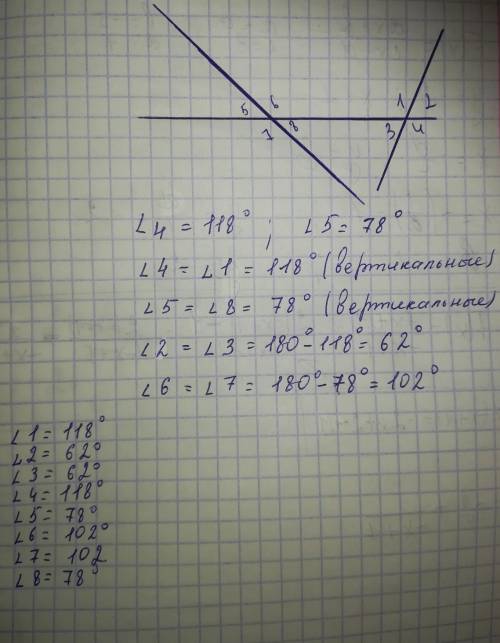 5 6 1 2
7 8 3 4
∠4 = 118° ; ∠5 = 78°
∠4 = ∠1 = 118° (вертикальные)
∠5 = ∠8 = 78° (вертикальные)
∠2 = ∠3 = 180° - 118° = 62°
∠6 = ∠7 = 180° - 78° = 102°
∠1 = 118°
∠2 = 62°
∠3 = 62°
∠4 = 118°
∠5 = 78°
∠6 = 102°
∠7 = 102
∠8 = 78°